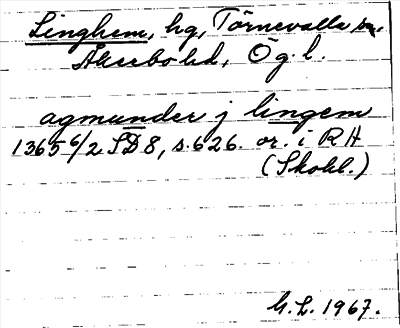 Linghem, hg, Törnevalla sn,
Åkerbo hd, Ög. l.
agmunder j lingem
1365 6/2 SD 8, s. 626. or. i RA
(Skokl.)
G.L. 1967.